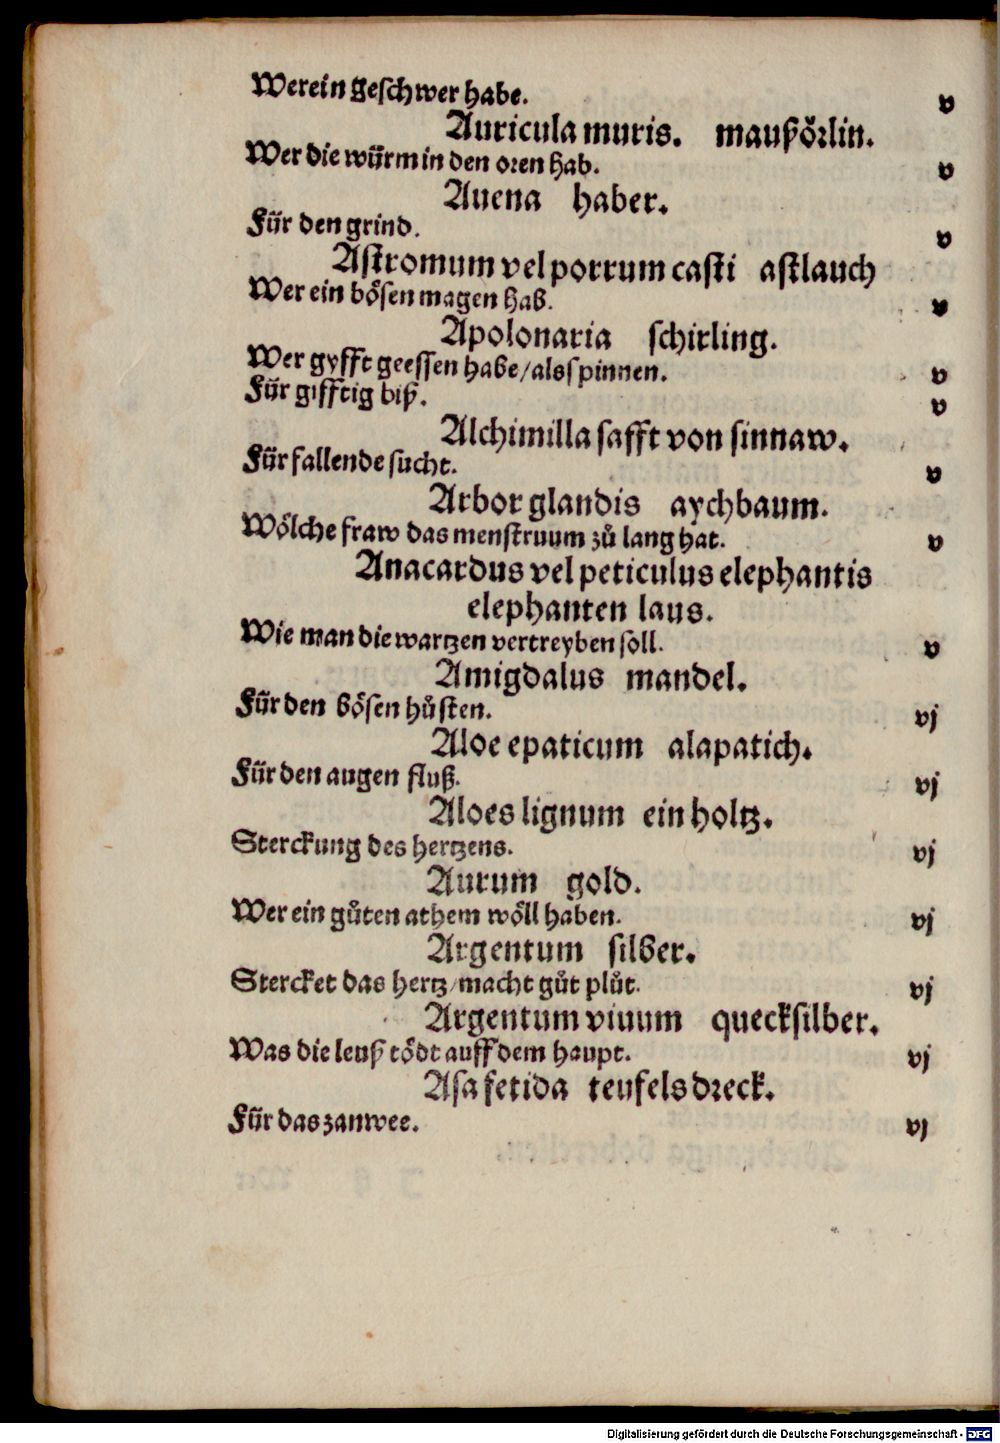 Werein geschwer habe. v
Auricula muris. maußörlin.
Wer die würm in den oren hab. v
Auena haber.
Für den grind. v
Astromum vel porrum casti astlauch
Wer ein bösen magen hab. v
Apolonaria schirling.
Wer gyfft geessen habe/als spinnen. v
Für gifftig biß. v
Alchimilla safft von sinnaw.
Für fallende sucht. v
Arbor glandis aychbaum.
Wölche fraw das menstruum zů lang hat. v
Anacardus vel peticulus elephantis
elephanten laus.
Wie man die wartzen vertreyben soll. v
Amigdalus mandel.
Für den bösen hůsten. vj
Aloe epaticum alapatich.
Für den augen fluß. vj
Aloes lignum ein holtz.
Sterckung des hertzens. vj
Aurum gold.
Wer ein gůten athem wöll haben. vj
Argentum silber.
Stercket das hertz/macht gůt plůt. vj
Argentum viuum quecksilber.
Was die leuß tödt auff dem haupt. vj
Asa fetida teufels dreck.
Für das zanwee. vj
Digitalisierung gefördert durch die Deutsche Forschungsgemeinschaft - DFG